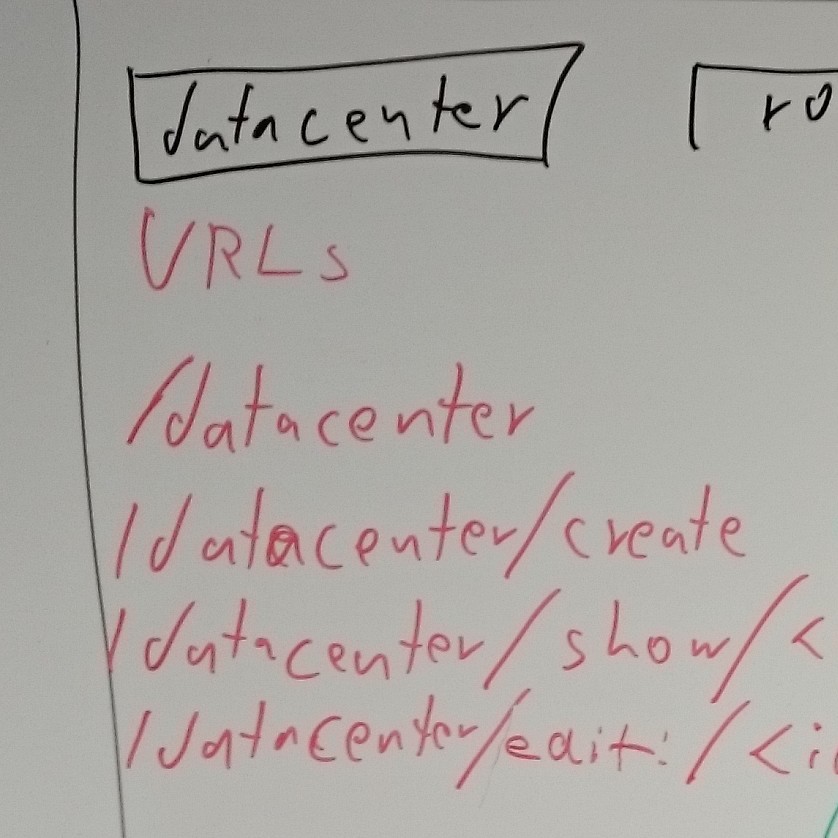 datacenter ro
URLs
/datacenter
/datacenter/create
/datacenter/show/<
/datacenter/edit:/<i